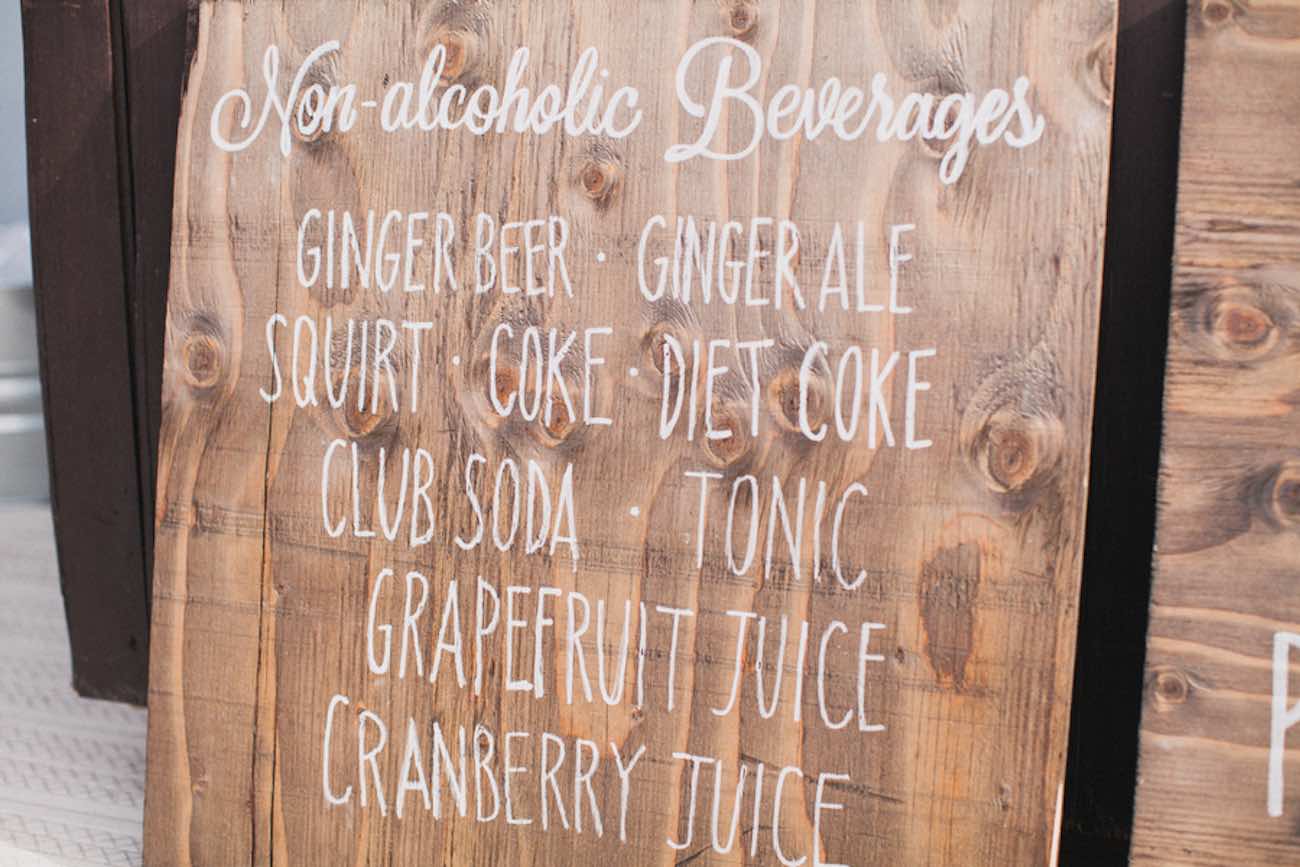 Non-alcoholic Beverages
GINGER BEER · GINGER ALE
SQUIRT · COKE · DIET COKE
CLUB SODA · TONIC
GRAPEFRUIT JUICE
CRANBERRY JUICE